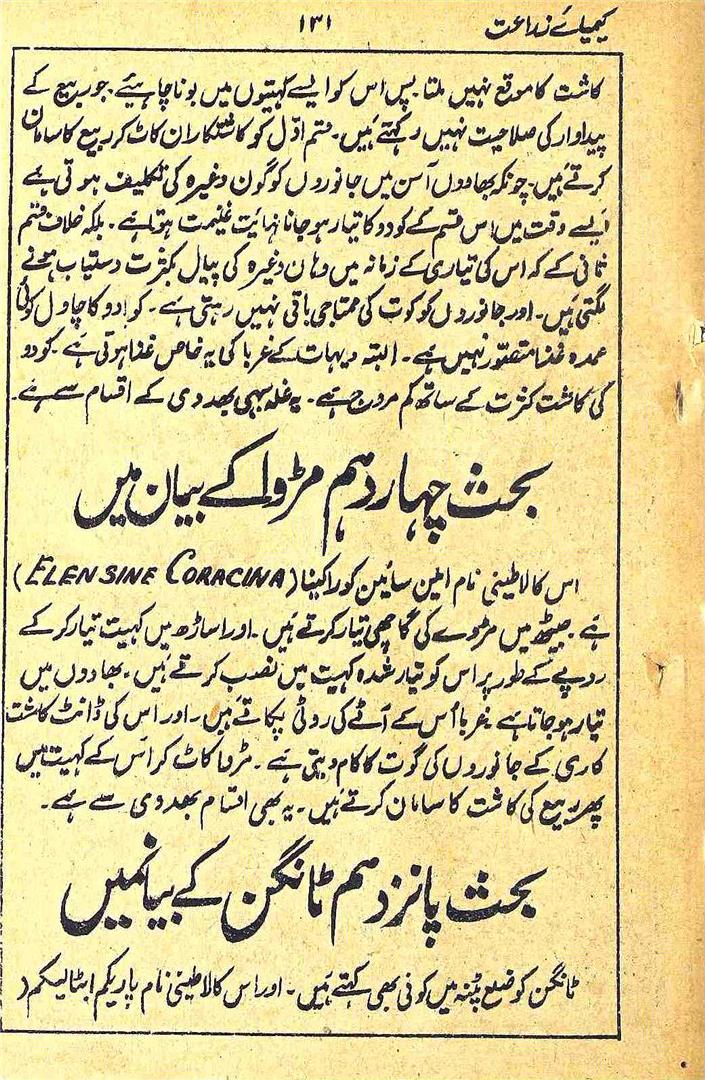 کیمیائے زراعت ۱۳۱
کاشت کا موقع نہیں ملتا پس اس کو ایسے کہیتوں میں بونا چاہیئے۔ جو ربیع کے
پیداوار کی صلاحیت نہیں رکہتے ہیں۔ قسم اوّل کو کاشتکاران کاٹ کر ربیع کا سامان
کرتے ہیں۔ چونکہ بھادوں آسن میں جانوروں کو گون وغیرہ کی تکلیف ہوتی ہے
ایسے وقت میں اس قسم کے کودو کا تیار ہو جانا نہایت غنیمت ہوتا ہے۔ بلکہ خلاف قسم
ثانی کے کہ اس کی تیاری کے زمانہ میں دہان وغیرہ کی پیال بکثرت دستیاب ہونے
لگتی ہیں۔ اور جانوروں کو کوت کی محتاجی باقی نہیں رہتی ہے۔ کوادو کا چاول کوئی
عمدہ غذا متصوّر نہیں ہے۔ البتہ دیہات کے غربا کی یہ خاص غذا ہوتی ہے۔ کودو
کی کاشت کثرت کے ساتھ کم مروج ہے۔ یہ غلہ بہی بھددی کے اقسام سے ہے۔
بحث چہاردہم مڑوا کے بیان میں
اس کا لاطینی نام الین سائین کوراکینا (ELENSINE CORACINA)
ہے۔ جیٹھ میں مڑوے کی گاچھی تیار کرتے ہیں۔ اور اساڑھ میں کہیت تیار کر کے
روپے کے طور پر اس کو تیار شدہ کہیت میں نصب کرتے ہیں۔ بھادوں میں
تیار ہو جاتا ہے غربا اُس کے آٹے کی روٹی پکاتے ہیں۔ اور اس کی ڈانٹ کاشت
کاری کے جانوروں کی گوت کا کام دیتی ہے۔ مڑوا کاٹ کر اس کے کہیت میں
پھر ربیع کی کاشت کا سامان کرتے ہیں۔ یہ بھی اقسام بھددی سے ہے۔
بحث پانزدہم ٹانگن کے بیانمیں
ٹانگن کو ضلع پٹنہ میں کونی بھی کہتے ہیں۔ اور اس کا لاطینی نام پاریکم ابٹالیکم (